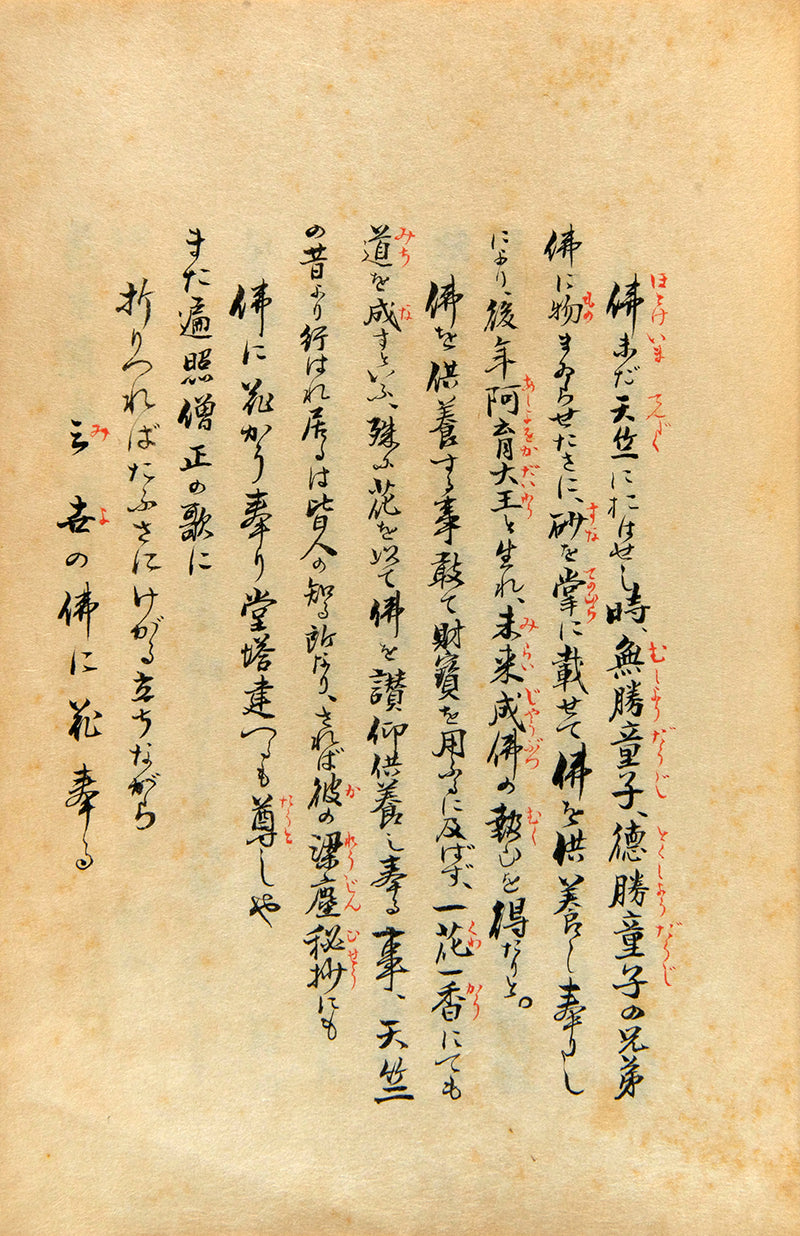 佛未だ天竺におはせし時、無勝童子、德勝童子の兄弟
佛に物まゐらせたさに、砂を掌に載せて佛を供養し奉りし
により、後年阿育大王と生れ、未来成佛の報ひを得たりと。
佛を供養する事敢て財寶を用ふるに及ばず、一花一香にても
道を成すといふ、殊に花を以て佛を讃仰供養し奉る事、天竺
の昔より行はれ居るは皆人の知る所なり、されば彼の梁塵秘抄にも
佛に花香奉り堂塔建つるも尊しや
また遍照僧正の歌に
折りつればたふさにけがる立ちながら
三世の佛に花奉る